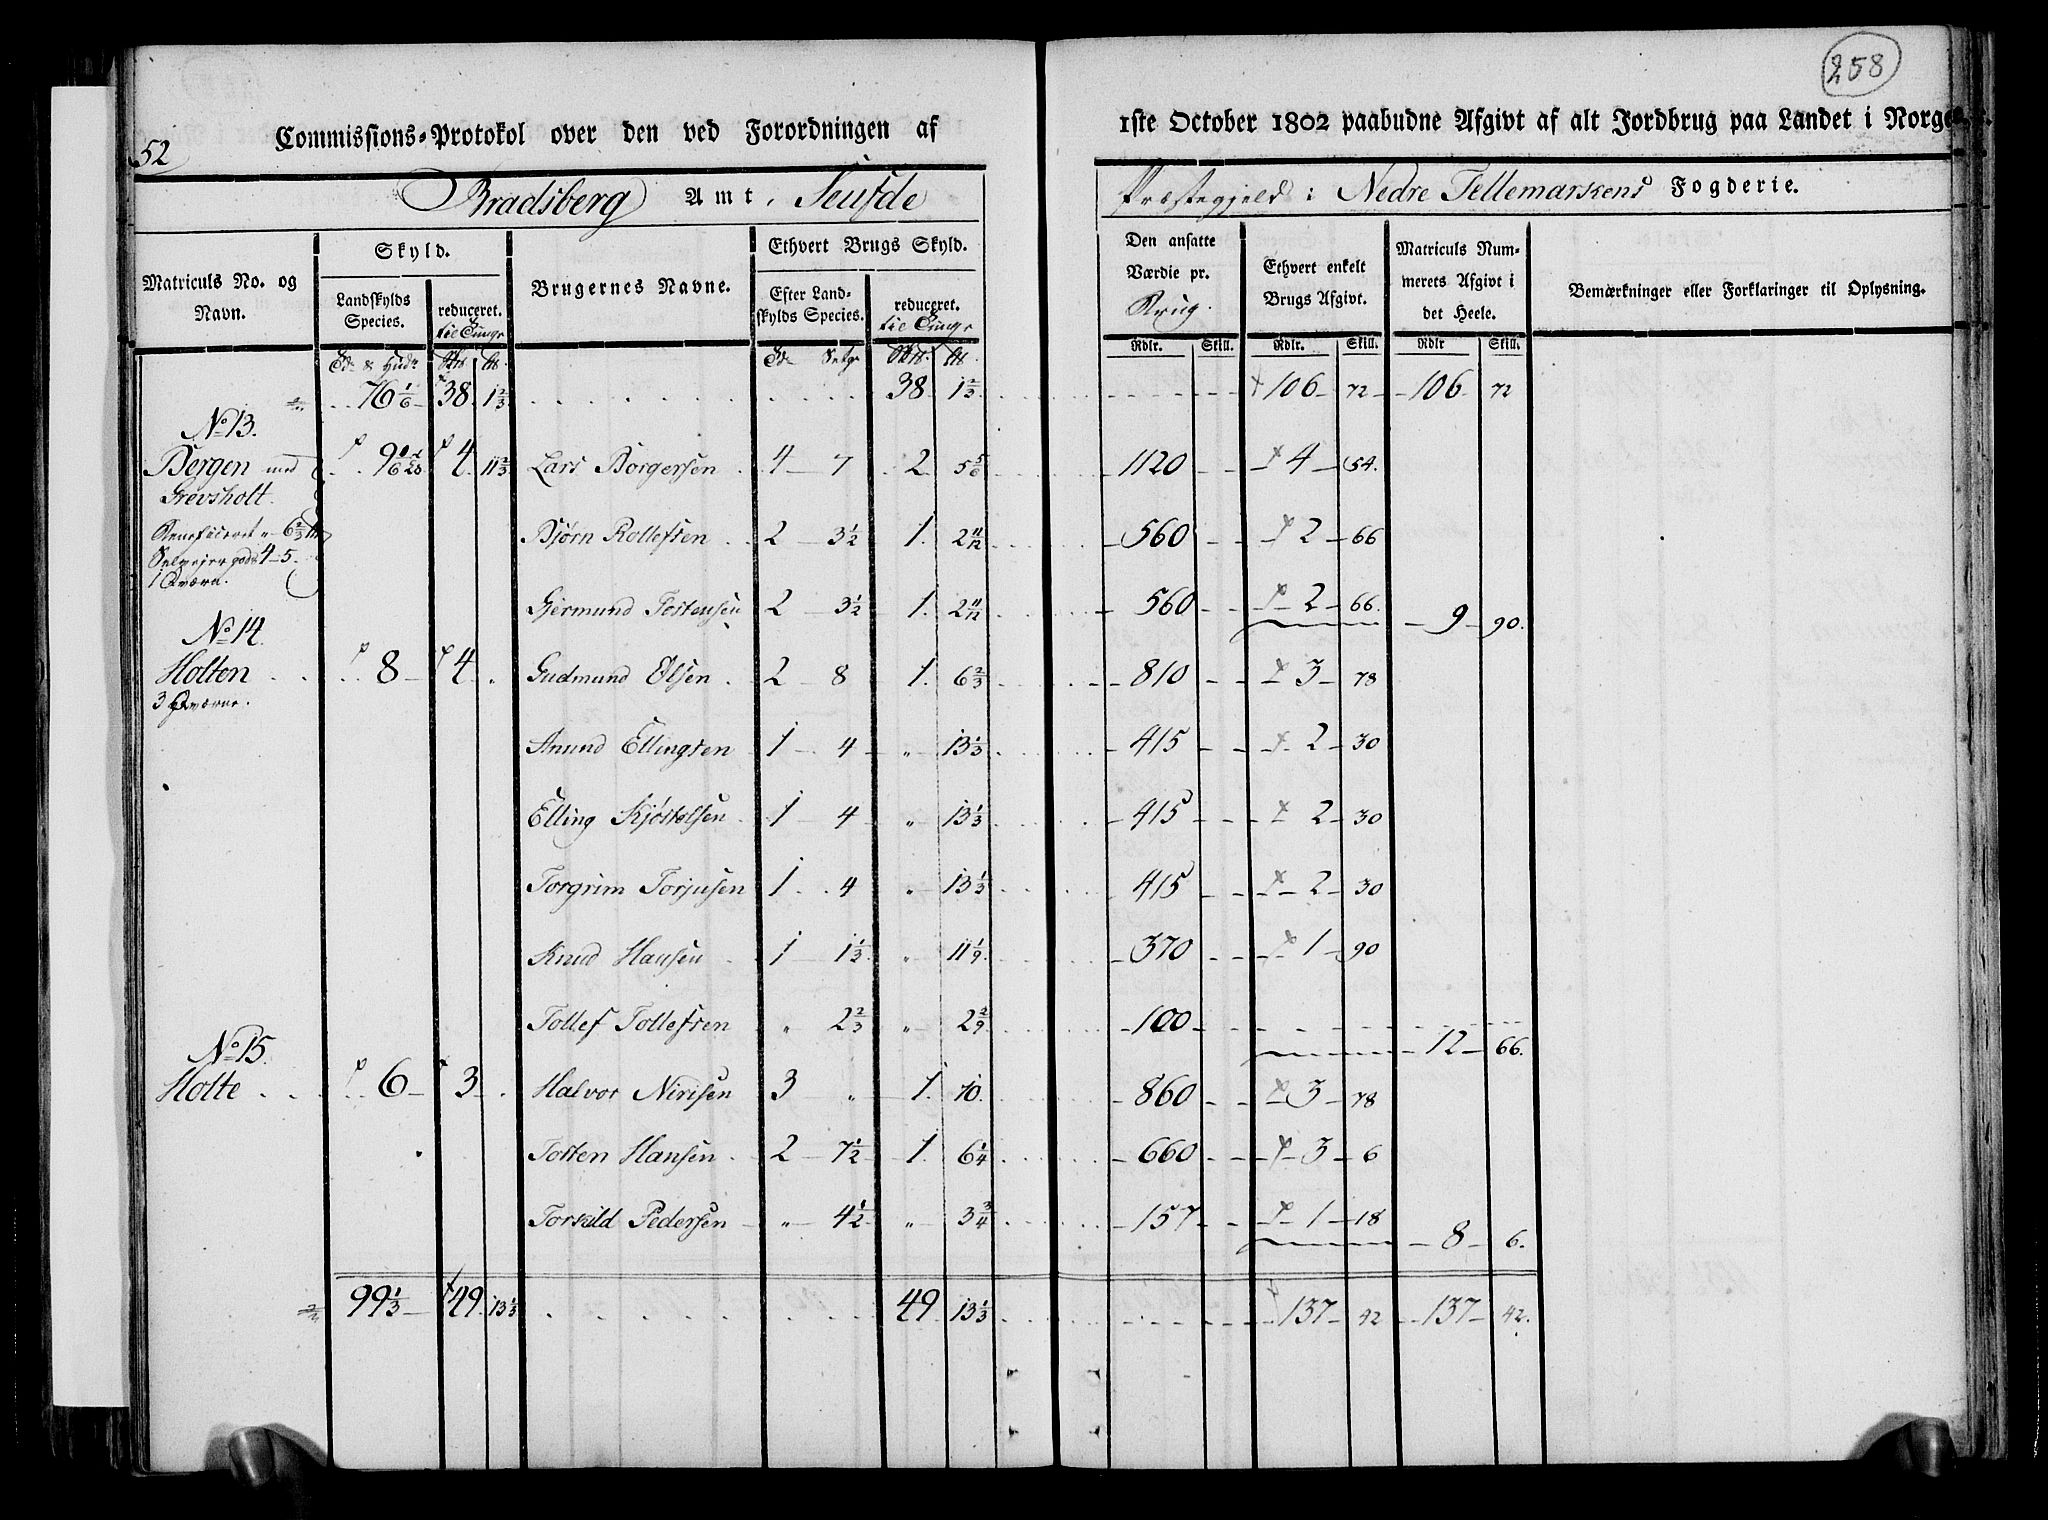 52
258
Commissions-Protokol over den ved Forordningen af
1ste October 1802 paabudne Afgivt af alt Jordbrug paa Landet i Norge
Bradsberg Amt, Seufde
Præstegjeld i Nedre Tellemarkens Fogderie.
Matriculs No. og Navn.
Skyld.
Landskylds Species.
reduceret. til Tunge
Brugernes Navne.
Ethvert Brugs Skyld.
Efter Landskylds Species.
reduceret. til Tunge
Den ansatte Værdie pr. Brug.
Ethvert enkelt Brugs Afgivt.
Matriculs Nummerets Afgivt i det Heele.
Bemærkninger eller Forklaringer til Oplysning.
Rdlr. Skill. Rdlr. Skill. Rdlr Skill.
76 1/6 38. 1 2/3 38. 1 2/3 106 72 106 72
No 13.
Bergen med 4 11 2/3 Lars Borgersen 4 7 2 5 5/6 1120 4 54.
Grevsholt.
Beneficeret " 6 2/3
Bjørn Rollefsen 2 3 1/2 1. 2 11/12 560 2 66
Selvejer gods 4 5.
1 Qværn.
Gjermund Tostensen 2 3 1/2 1. 2 11/12 560 2 66. 9 90.
No 14.
Holten 8 4 Gudmund Olsen 2 8 1. 6 2/3 810 3 78
3 Qværne.
Anund Ellingsen 1 4 " 13 1/3 415 2 30
Elling Kjøstelsen 1 4 " 13 1/3 415 2 30
Torgrim Torjusen 1 4 " 13 1/3 415 2 30
Knud Hansen 1 1 1/3 " 11 1/9 370 1 90
Tollef Tollefsen " 2 2/3 " 2 2/9 100 12 66.
No 15.
Holte 6 3 Halvor Nirisen 3 " 1. 10. 860 3 78
Tosten Hansen 2 7 1/2 1. 6 1/4 660 3 6
Torkild Pedersen " 4 1/2 " 3 3/4 157 1 18 8 6.
99 1/3 49. 13 1/3 49 13 1/3 137 42 137 42.